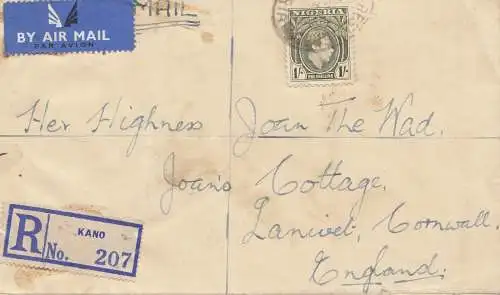 BY AIR MAIL
PAR AVION
NIGERIA
1/- ONE SHILLING 1/-
Her Highness Joan The Wad.
Joan's Cottage,
Lanivet, Cornwall.
England.
R KANO
No. 207